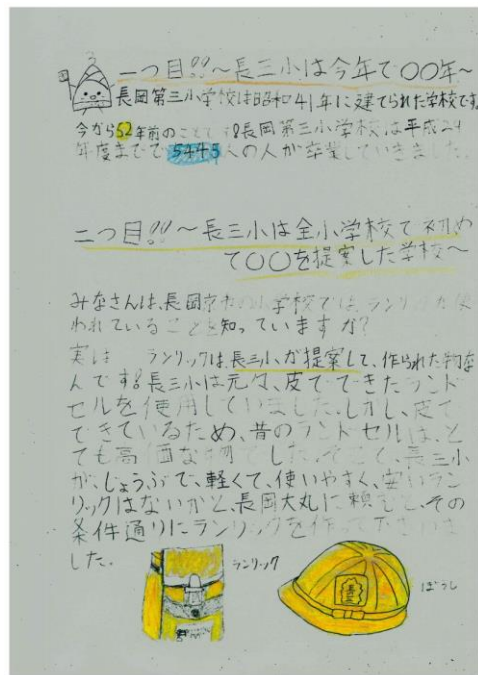 一つ目!!～長三小は今年で〇〇年～
長岡第三小学校は昭和41年に建てられた学校です。
今から52年前のことです!長岡第三小学校は平成29
年度までで5445人の人が卒業していきました。
二つ目!!～長三小は全小学校で初め
て〇〇を提案した学校～
みなさんは、長岡京市の小学校ではランリックが使
われていることを知っていますか?
実は ランリックは、長三小が提案して、作られた物な
んです!長三小は元々、皮でできたランド
セルを使用していました。しかし、皮で
できているため、昔のランドセルは、と
ても高価な物でした。そこで、長三小
が、じょうぶで、軽くて、使いやすく、安いラン
リックはないかと、長岡大丸に頼むと、その
条件通りにランリックを作って下さいま
した。
ランリック
ぼうし